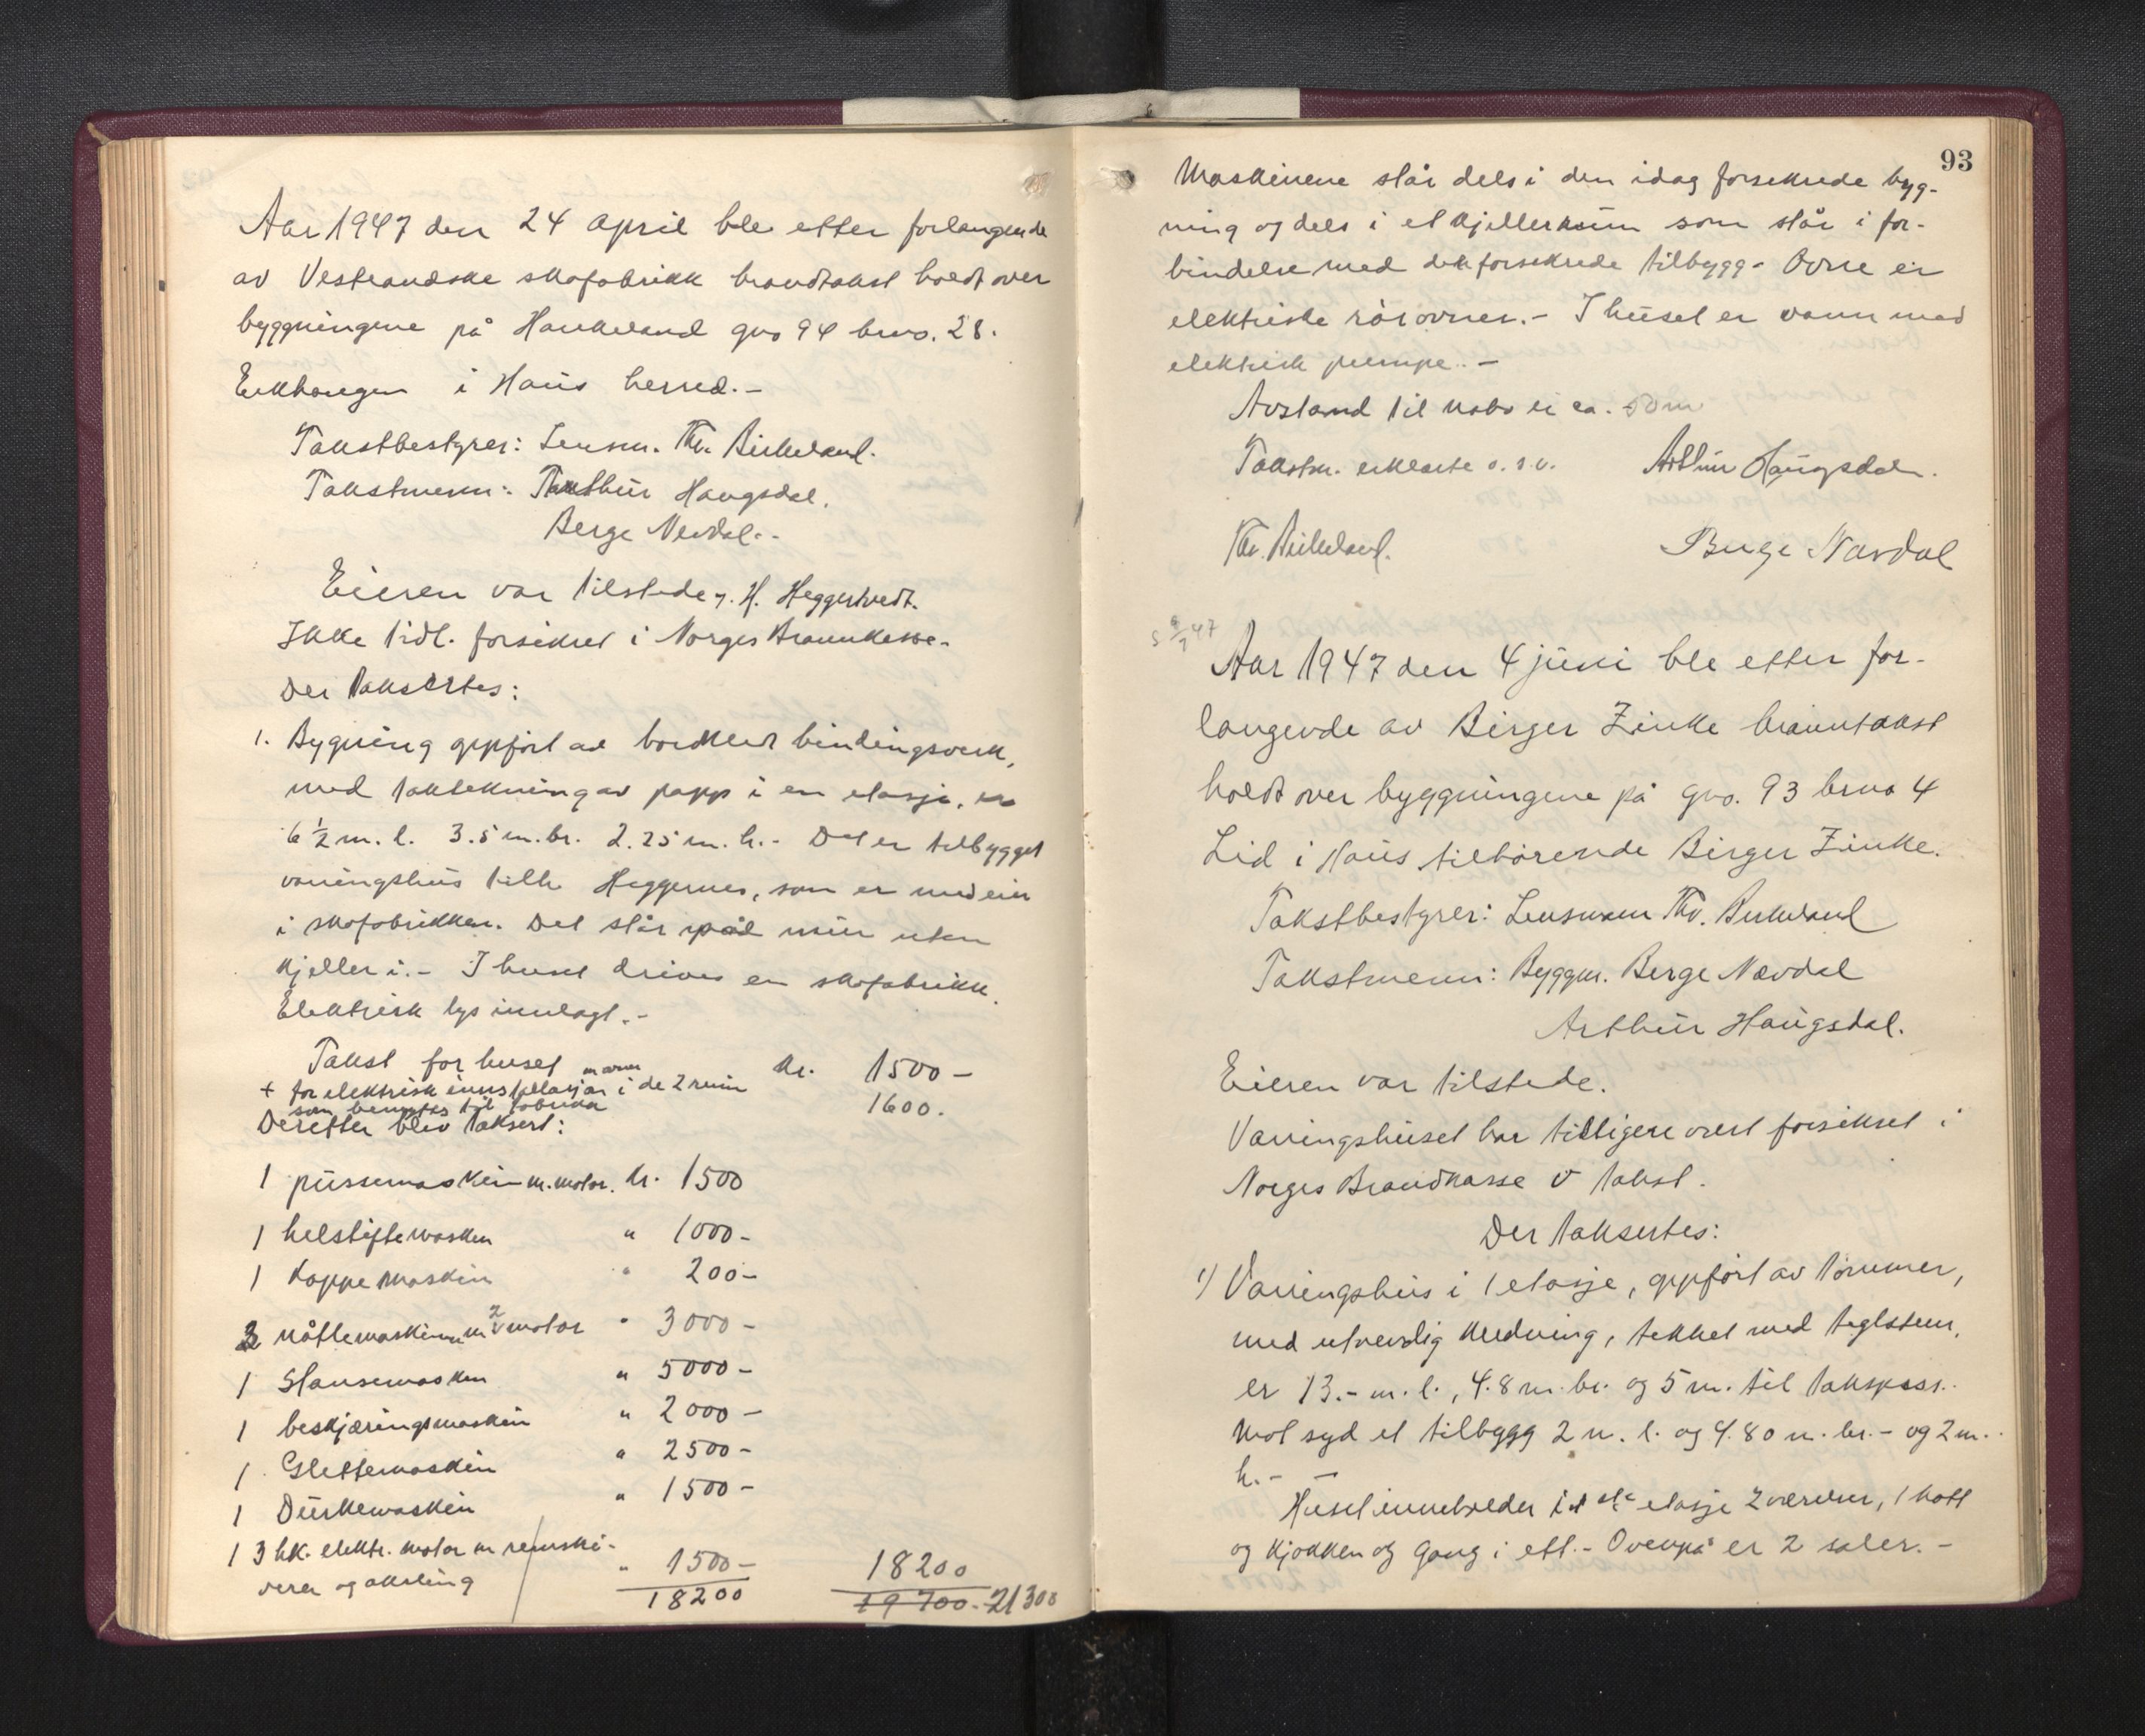 Aar 1947 den 24 april ble etter forlangende
av Vestlandske skofabrikk brandtakst holdt over
byggningene på Haukeland gno 94 bno. 28.
i Haus herred.-
Takstbestyrer: Lensm. Thv. Birkeland.
Takstmenn: Arthur Haugsdal.
Berge Nævdal.-
Eieren var tilstede v. H. Heggertvedt.
Ikke tidl. forsikret i Norges Brannkasse.
Der taksertes:
1. Bygning oppført av bordkledt bindingsverk,
med taktekning av papp i en etasje, er
6 1/2 m. l. 3.5 m. br. 2.25 m. h.- Det er tilbygget
vaningshus tilh. Heggernes, som er medeier
i skofabrikken. Det står på mur uten
kjeller i.- I huset drives en skofabrikk.
Elektrisk lys innlagt.-
Takst for huset kr. 1500-
m ovner
+ for elektrisk innstallasjon i de 2 rum 1600.
som benyttes til fabrikk
Deretter blev taksert:
1 pussemaskin m. motor. kr. 1500
1 helstiftemaskin " 1000-
1 Kappemaskin " 200-
2 nåtlemaskiner m 2 motor " 3000-
1 Stansemaskin " 5000-
1 beskjæringsmaskin " 2000-
1 Glettemaskin " 2500-
1 Durkemaskin " 1500-
1 3 hk. elektr. motor m remski-
ver og aksling " 1500- 18200
18200 19700.- 21300
93
Maskinene står dels i den idag forsikrede byg-
ning og dels i et kjellerrum som står i for-
bindelse med det forsikrede tilbygg- Ovne er
elektriske rörovner.- I huset er vann med
elektrisk pumpe.-
Avstand til nabo er ca. 50 m
Takstm. erklærte o. s. v. Arthur Haugsdal.
Thv. Birkeland. Berge Nævdal
Aar 1947 den 4 juni ble etter for-
langende av Birger Zinke branntakst
holdt over byggningene på gno. 93 bno 4
Lid i Haus tilhørende Birger Zinke.
Takstbestyrer: Lensmann Thv. Birkeland
Takstmenn: Byggm. Berge Nævdal
Arthur Haugsdal.
Eieren var tilstede.
Vaningshuset har tidligere vært forsikret i
Norges Brandkasse v takst.
Der taksertes:
1) Vaningshus i 1 etasje, oppført av tømmer,
med utvendig kledning, tekket med teglsten,
er 13.- m. l., 4.8 m. br. og 5 m. til takspiss.
Mot syd et tilbygg 2 m. l. og 4.80 m. br.- og 2 m.
h.-
Huset inneholder i 1ste etasje 2 værelser, 1 kott
og kjøkken og gang i ett.- Ovenpå er 2 saler.-